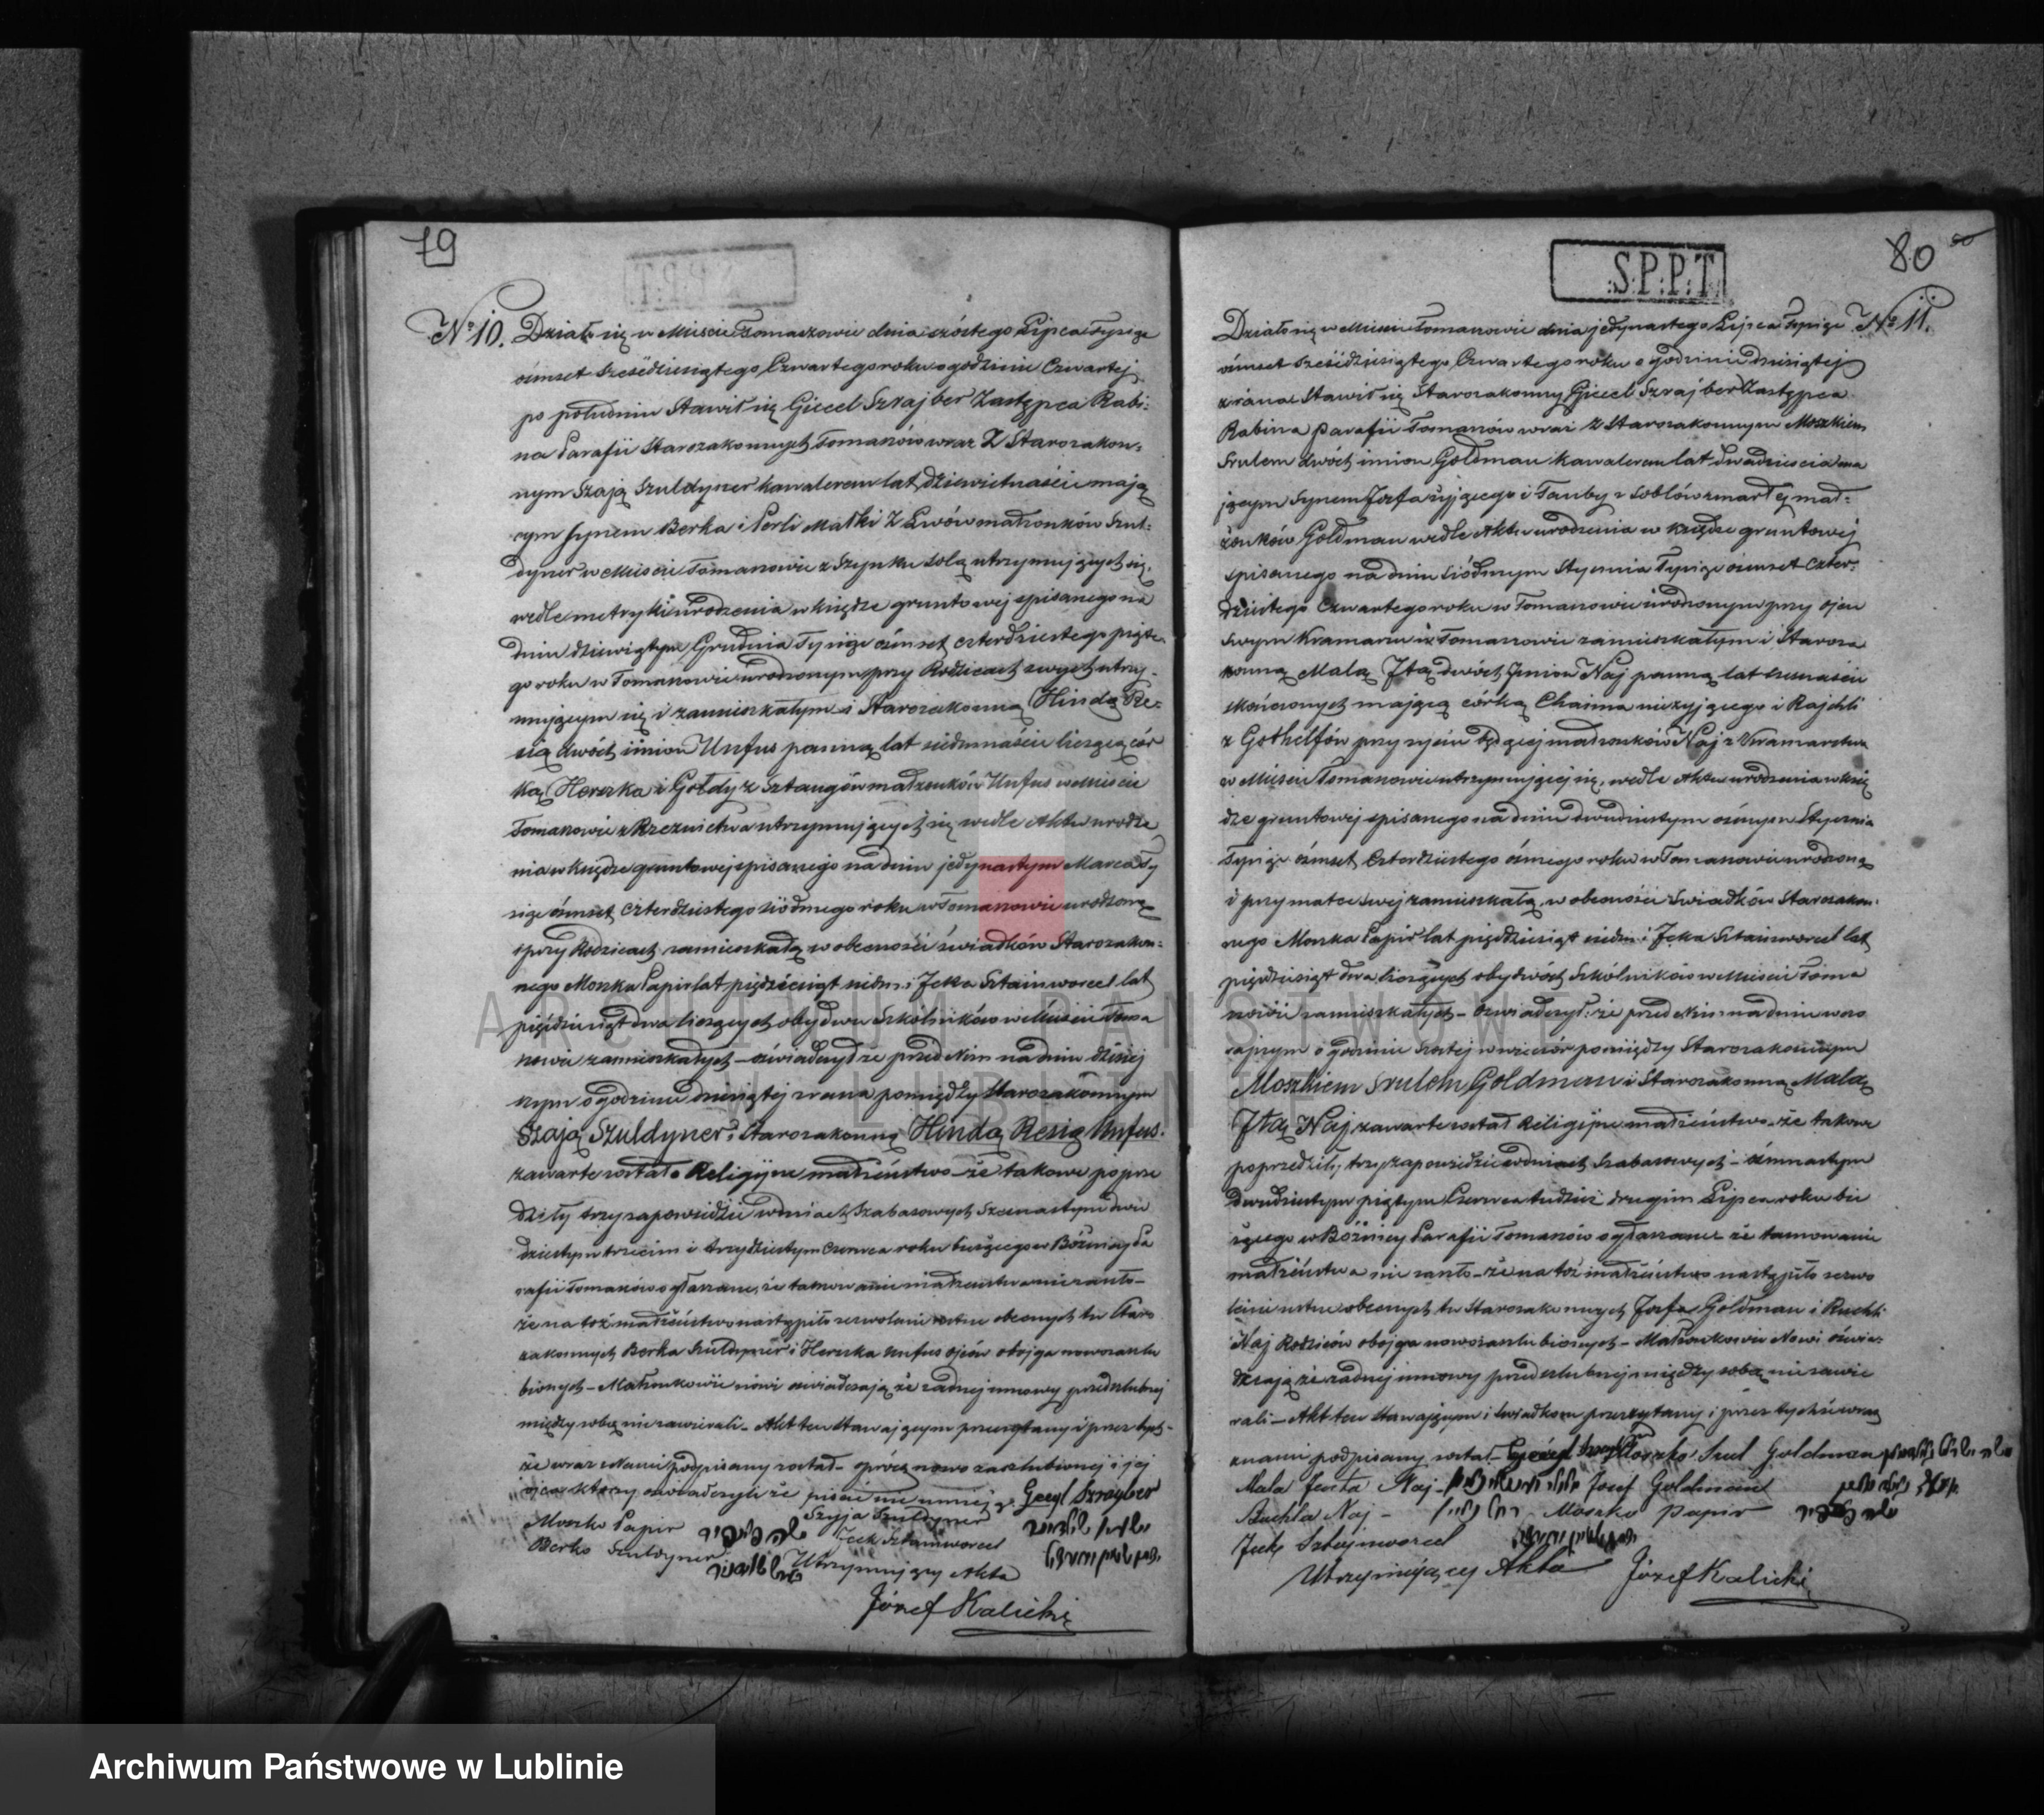 79
S.P.P.T
No 10. Działo się w Mieście Tomaszowie dnia szóstego Lipca Tysiąc
ośmset sześćdziesiątego Czwartego roku o godzinie Czwartej
po południu Stawił się Giecel Szrajber Zastępca Rabi:
na Parafii Starozakonnych Tomaszów wraz z Starozakon:
nym Szają Szuldyner kawalerem lat dziewietnaście mają
cym synem Berka i Perli Matki z Lwów małżonków Szul:
dyner w Mieście Tomaszowie z Szynku Solą utrzymujących się,
wedle metryki urodzenia w księdze gruntowej spisanego na
dniu dziewiątym Grudnia Tysiąc ośmset czterdziestego piąte
go roku w Tomaszowie urodzonym przy Rodzicach swych utrzy-
mującym się i zamieszkałym i Starozakonną Hindą Re:
sią dwóch imion Unfus panną lat siedmnaście liczącą cór
ką Herszka i Gołdy z Sztangów małżonków Unfus w Mieście
Tomaszowie z Rzeznictwa utrzymujących się wedle Aktu urodze
nia w księdze gruntowej spisanego na dniu jedynastym Marca Ty
siąc ośmset czterdziestego siódmego roku w Tomaszowie urodzoną
i przy Rodzicach zamieszkałą w obecności świadków Starozakon:
nego Moszka Papir lat pięździesiąt siedm i Jcka Sztainworcel lat
pięździesiąt dwa liczących obydwu Szkolników w Mieście Toma
szowie zamieszkałych – oświadczył że przed Nim na dniu dzisiej
szym o godzinie dziesiątej zrana pomiędzy Starozakonnym
Szają Szuldyner i Starozakonną Hindą Resią Unfus.
zawarte zostało Religijne małżeństwo – że takowe poprze
dziły trzy zapowiedzie w dniach Szabasowych Szesnastym dwu
dziestym trzecim i trzydziestym Czerwca roku bieżącego w Bóżnicy Pa
rafii Tomaszów ogłaszane, że tamowanie małżeństwa nie zaszło –
że na toż małżeństwo nastąpiło zezwolenie ustne obecnych tu Staro
zakonnych Berka Szuldyner i Herszka Unfus ojców obojga nowozaślu
bionych – Małżonkowie nowi oświadczają że żadnej umowy przedślubnej
między sobą nie zawierali – Akt ten Stawającym przeczytany i przez tych-
że wraz z Nami podpisany został – oprócz nowo zaślubionej i jej
ojca którzy oświadczyli że pisać nie umieją. Gecyl Szrajber
Moszko Papir Szyja Szuldyner
Berko Szuldyner Jcek Sztainworcel
Utrzymujący Akta
Józef Kalicki
80
S.P.P.T
Działo się w Mieście Tomaszowie dnia jedynastego Lipca Tysiąc No 11.
ośmset sześćdziesiątego Czwartego roku o godzinie dziesiątej
z rana Stawił się Starozakonny Giecel Szrajber Zastępca
Rabina Parafii Tomaszów wraz z Starozakonnym Moszkiem
Srulem dwóch imion Goldman kawalerem lat dwadzieścia ma
jącym Synem Josfa żyjącego i Tauby z Soblów zmarłej mał:
żonków Goldman wedle Aktu urodzenia w księdze gruntowej
spisanego na dniu siódmym Stycznia Tysiąc ośmset czter:
dziestego Czwartego roku w Tomaszowie urodzonym przy ojcu
swym Kramarzu w Tomaszowie zamieszkałym i Staroza
konną Malą Jtą dwóch Jmion Naj panną lat szesnaście
skończonych mającą córką Chaima nieżyjącego i Rajchli
z Gothelfów przy życiu będącej małżonków Naj z Kramarstwa
w Mieście Tomaszowie utrzymującej się, wedle Aktu urodzenia w księ
dze gruntowej spisanego na dniu dwudziestym ósmym Stycznia
Tysiąc ośmset Czterdziestego ósmego roku w Tomaszowie urodzoną
i przy matce swej zamieszkałą, w obecności Świadków Starozakon:
nego Moszka Papir lat pięździesiąt siedm i Jcka Sztainworcel lat
pięździesiąt dwa liczących obydwóch Szkólników w Mieście Toma
szowie zamieszkałych – Oświadczył: że przed Nim na dniu wczo
rajszym o godzinie szóstej w wieczór pomiędzy Starozakonnym
Moszkiem Srulem Goldman i Starozakonną Malą
Jtą Naj zawarte zostało Religijne małżeństwo – że takowe
poprzedziły trzy zapowiedzie w dniach Szabasowych – ośmnastym
dwudziestym piątym Czerwca tudzież drugim Lipca roku bie
żącego w Bóżnicy Parafii Tomaszów ogłaszane – że tamowanie
małżeństwa nie zaszło – że na toż małżeństwo nastąpiło zezwo
lenie ustne obecnych tu Starozakonnych Josfa Goldman i Ruchli
Naj Rodziców obojga nowozaślubionych – Małżonkowie Nowi oświa:
dczają że żadnej umowy przedślubnej między sobą nie zawie
rali – Akt ten Stawającym i świadkom przeczytany i przez tychże wraz
z nami podpisany został – Moszko Srul Goldman
Mala Jta Naj – Josef Goldman
Ruchla Naj – Moszko Papir
Jcek Sztajnworcel
Utrzymujący Akta Józef Kalicki
ARCHIWUM PAŃSTWOWE
W LUBLINIE
Archiwum Państwowe w Lublinie